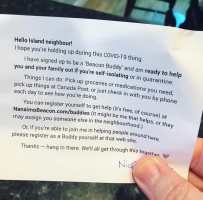 Hello Island neighbour!
I hope you're holding up during this COVID-19 thing.
I have signed up to be a 'Beacon Buddy' and am ready to help
you and your family out if you're self-isolating or in quarantine.
Things I can do: Pick up groceries or medications you need,
pick up things at Canada Post, or just check in with you by phone
each day to see how you're doing.
You can register yourself to get help (it's free, of course) at
NanaimoBeacon.com/buddies (It might be me that helps, or they
may assign you someone else in the neighbourhood.)
Or, if you're able to join me in helping people around here,
please register as a Buddy yourself at that web site.
Thanks — hang in there. We'll all get through this together.